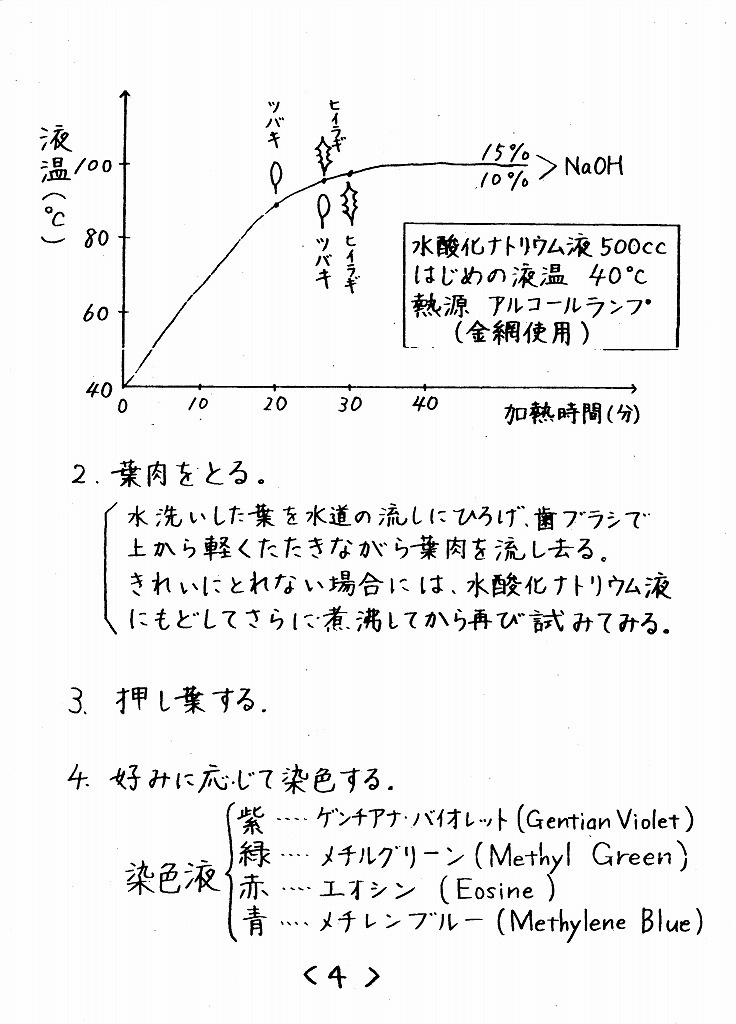 液温(℃)
100
80
60
40
0 10 20 30 40
加熱時間(分)
ツバキ
ヒイラギ
ツバキ
ヒイラギ
15%
10%
NaOH
水酸化ナトリウム液500cc
はじめの液温 40℃
熱源 アルコールランプ
(金網使用)
2. 葉肉をとる。
水洗いした葉を水道の流しにひろげ、歯ブラシで
上から軽くたたきながら葉肉を流し去る。
きれいにとれない場合には、水酸化ナトリウム液
にもどしてさらに煮沸してから再び試みてみる。
3. 押し葉する.
4. 好みに応じて染色する.
染色液
紫 ‥‥ ゲンチアナ・バイオレット(Gentian Violet)
緑 ‥‥ メチルグリーン(Methyl Green)
赤 ‥‥ エオシン (Eosine)
青 ‥‥ メチレンブルー(Methylene Blue)
<4>